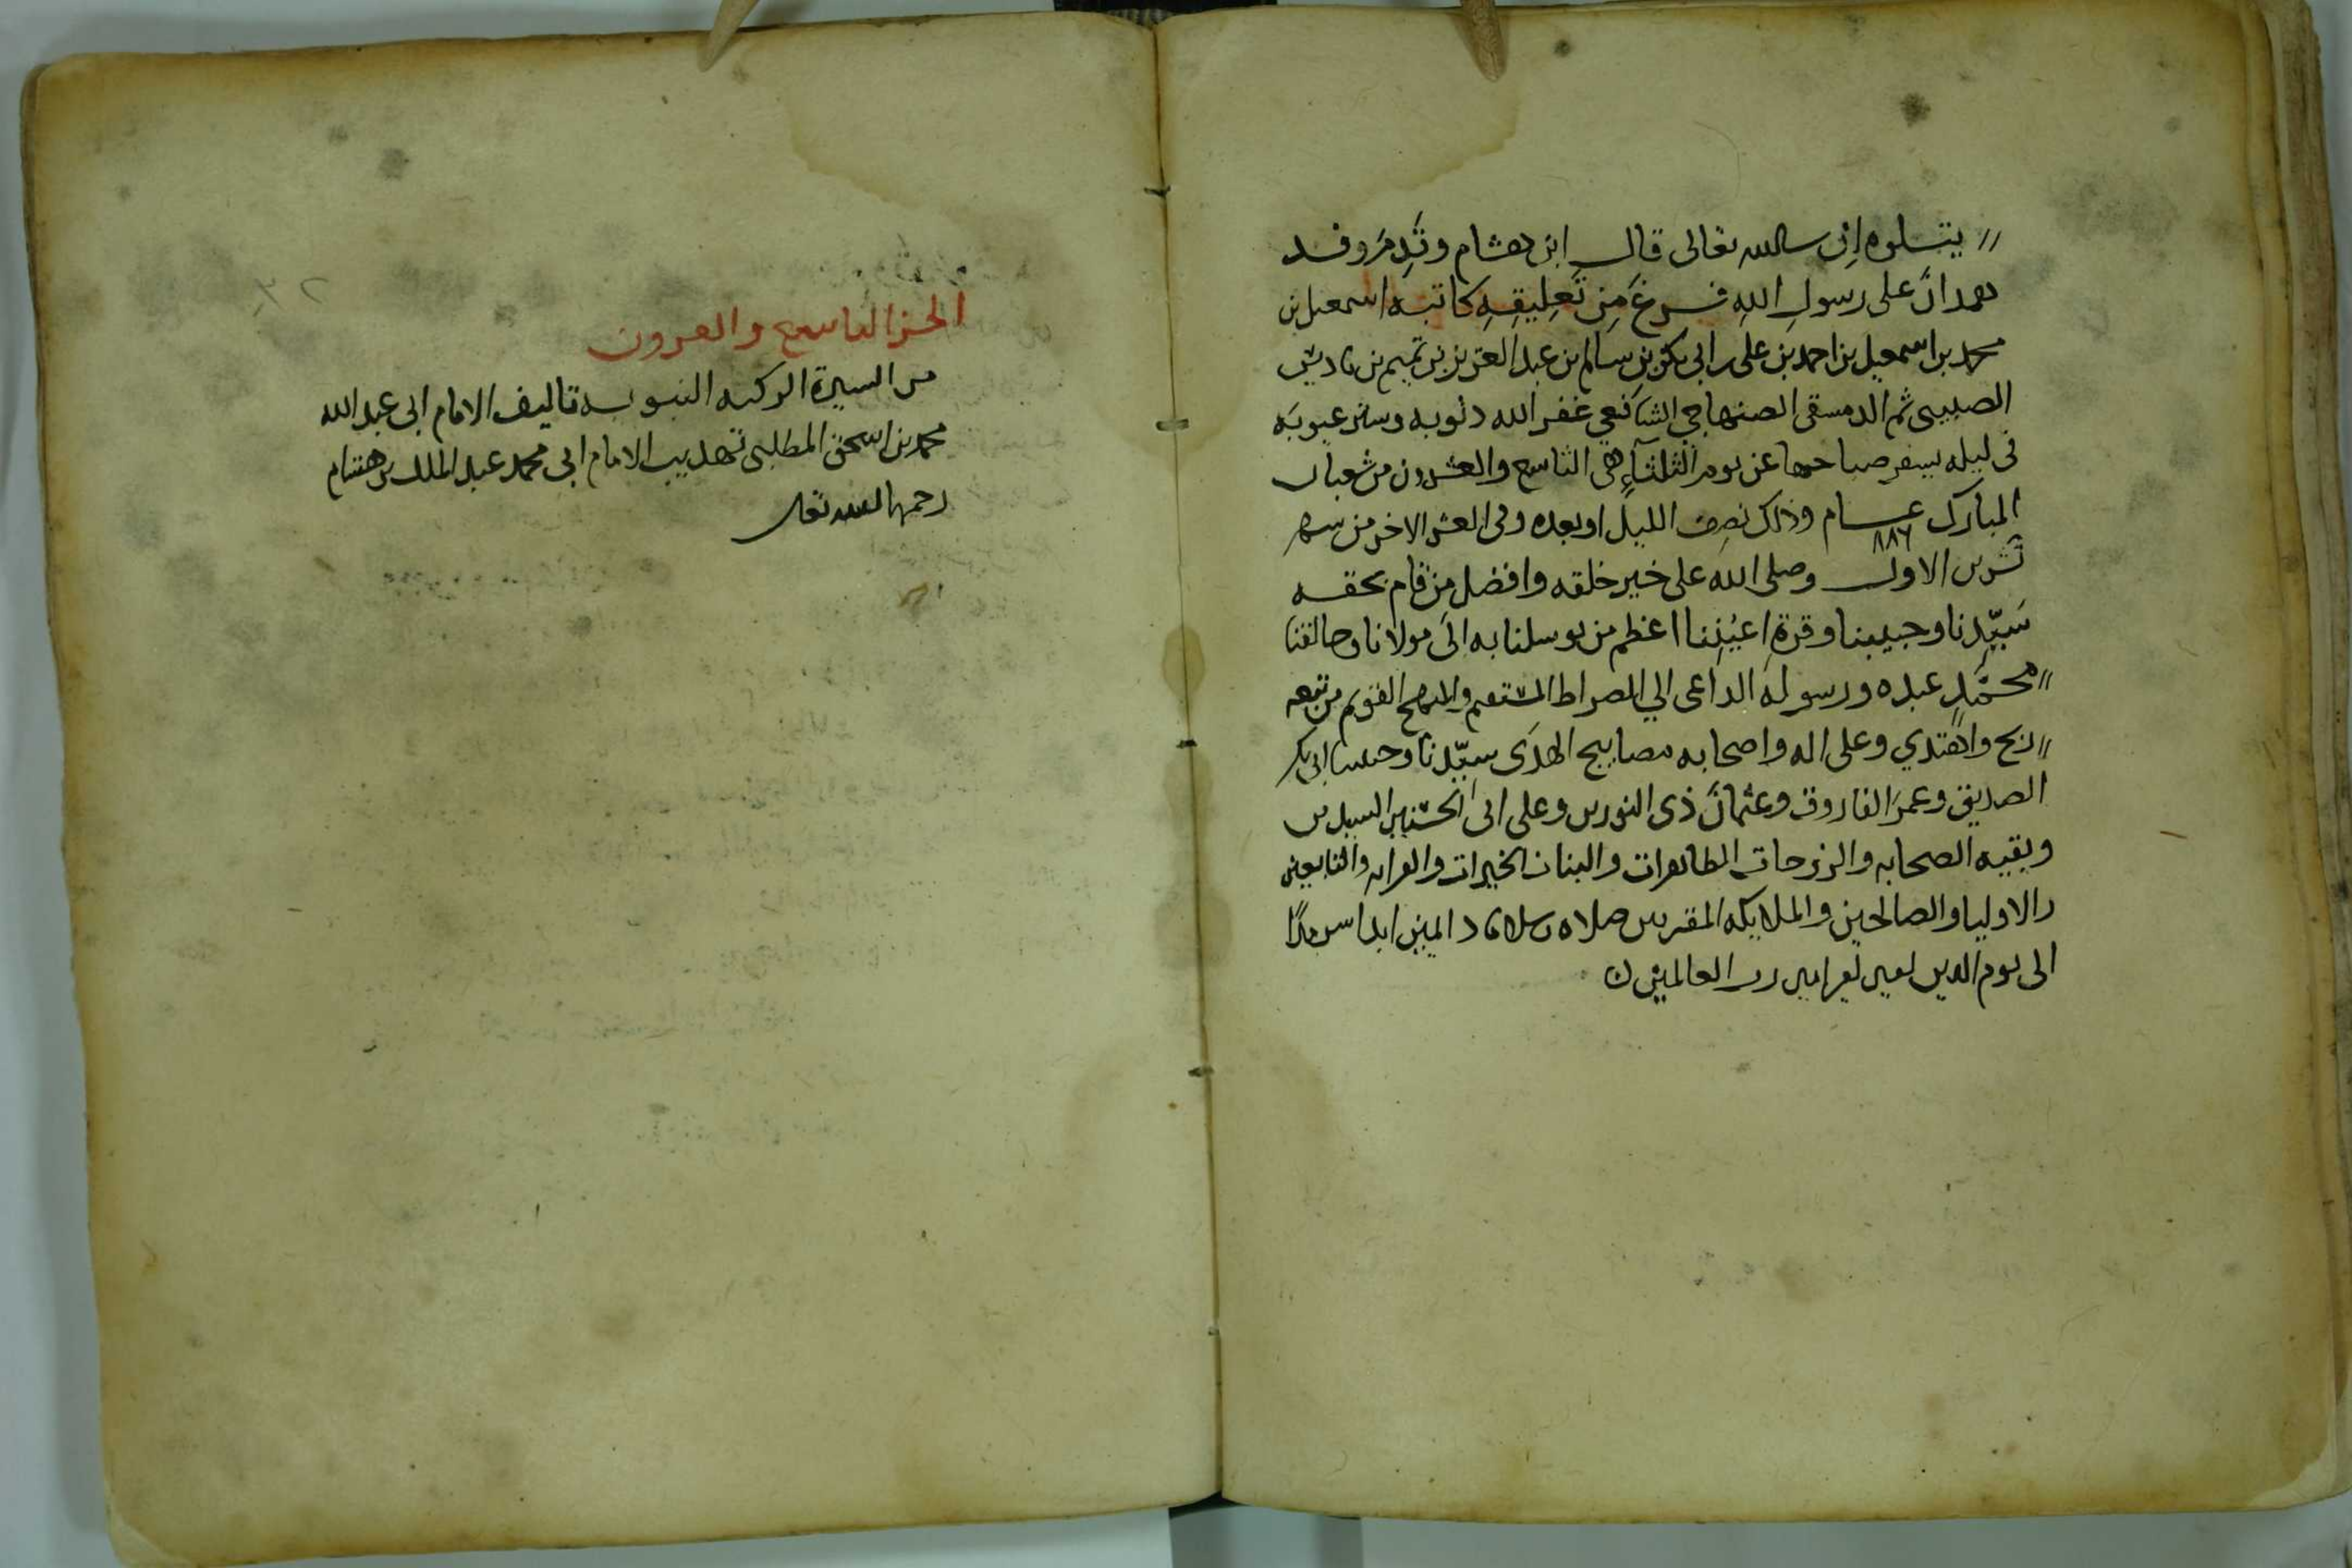 يتلوه إن شاء الله تعالى قال ابن هشام وقَدِمَ وفد
همدانَ على رسولِ اللهِ فرغَ مِن تَعلِيقِهِ كاتبه اسمعيل بن
محمد بن اسمعيل بن احمد بن على بن ابي بكر بن سالم بن عبد العزيز بن تميم بن باديس
ثم الدمشقي الصنهاجي الشافعي غفر الله ذنوبه وستر عيوبه
في ليله يسفر صباحها عن يوم الثلثاءِ هي التاسع والعشرون من شعبان
المبارك عام ٨٨٦ وذلك نصف الليل او بعده وفي العشر الاخر من شهر
تشرين الاول وصلى الله على خير خلقه وافضل من قام بحقه
سَيّدِنا وحبيبنا وقرة اعيُنِنا اعظم من توسلنا به الى مولانا وخالقنا
محمَّدٍ عبده ورسوله الداعى الي الصراط المستقيم والمنهج القويم من تبعه
ربح واهتدي وعلى اله واصحابه مصابيح الهدَى سيّدنا وحبيبنا ابي بكر
الصديق وعمرَ الفاروق وعثمانَ ذى النورين وعلى ابى الحسَنين السيدين
وبقيه الصحابه والزوجات الطاهرات والبنات الخيرات والقرابه والتابعين
والاوليا والصالحين والملايكه المقربين صلاه وسلاما دايمين ابدا سرمدًا
الى يوم الدين امين امين رب العالمين
الجزالتاسع والعشرون
من السيرة الزكيه النبويه تاليف الامام ابى عبد الله
محمد بن اسحق المطلبى تهذيب الامام ابى محمد عبد الملك بن هشام
رحمهما الله تعالى